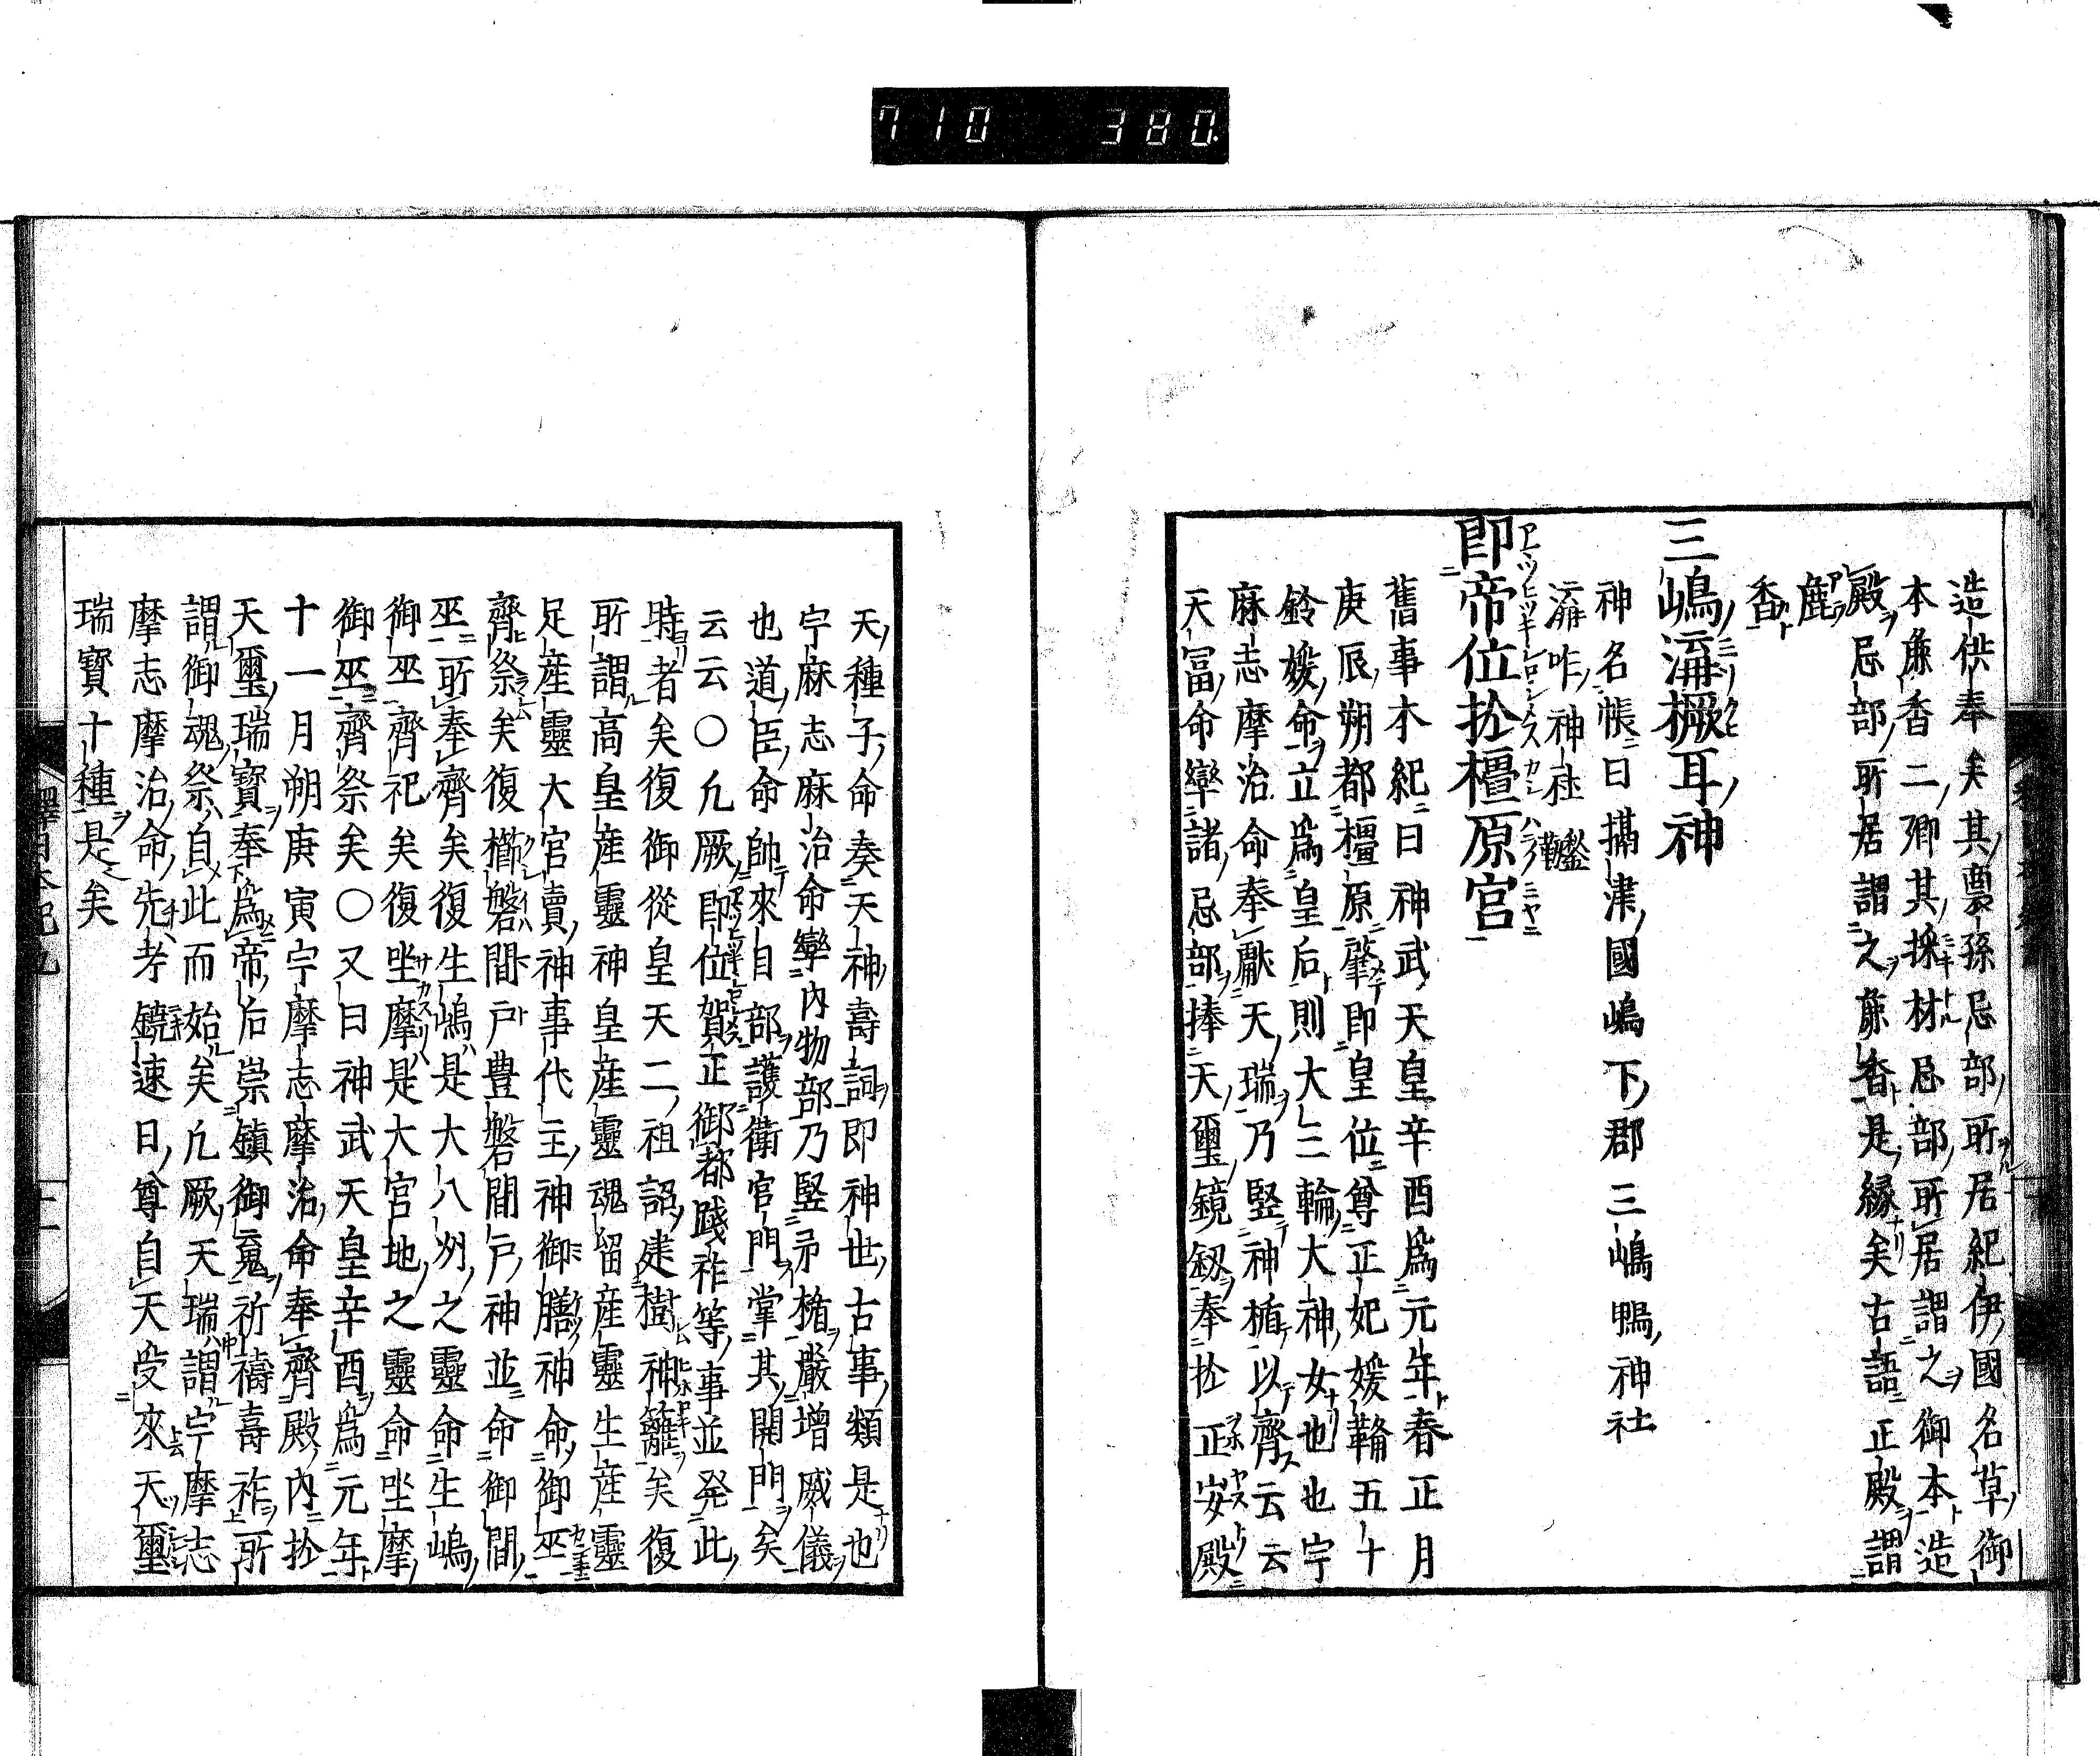 710 380
造供奉矣其裔孫忌部所居紀伊國名草御
本麁香二郷其採材忌部所居謂之御本造
殿忌部所居謂之麁香是縁矣古語正殿謂
麁
香
三嶋溝橛耳神
神名帳曰攝津國嶋下郡三嶋鴨神社
溝咋神社 鞁
即帝位於橿原宮
舊事本紀曰神武天皇辛酉爲元年春正月
庚辰朔都橿原肇即皇位尊正妃媛鞴五十
鈴媛命立爲皇后則大三輪大神女也也宇
麻志摩治命奉獻天瑞乃竪神楯以齊云云
天冨命率諸忌部捧天璽鏡釼奉於正安殿
天種子命奏天神壽詞即神世古事類是也
宇麻志麻治命率內物部乃竪矛楯嚴增威儀
也道臣命帥來目部護衛宮門掌其開門矣
云云○凡厥即位賀正御都踐祚等事並発此
時者矣復御從皇天二祖詔建樹神籬矣復
所謂高皇産靈神皇産靈魂留産靈生産靈
足産靈大宮賣神事代主神御膳神命御巫
齊祭矣復櫛磐間戸豊磐間戸神並命御間
巫所奉齊矣復生嶋是大八洲之靈命生嶋
御巫齊祀矣復坐摩是大宮地之靈命坐摩
御巫齊祭矣○又曰神武天皇辛酉爲元年
十一月朔庚寅宇摩志摩治命奉齊殿內於
天璽瑞寳奉爲帝后崇鎮御䰟祈禱壽祚所
謂御魂祭自此而始矣凡厥天瑞謂宇摩志
摩志摩治命先考饒速日尊自天受來天璽
瑞寳十種是矣
釋日本紀九
十一